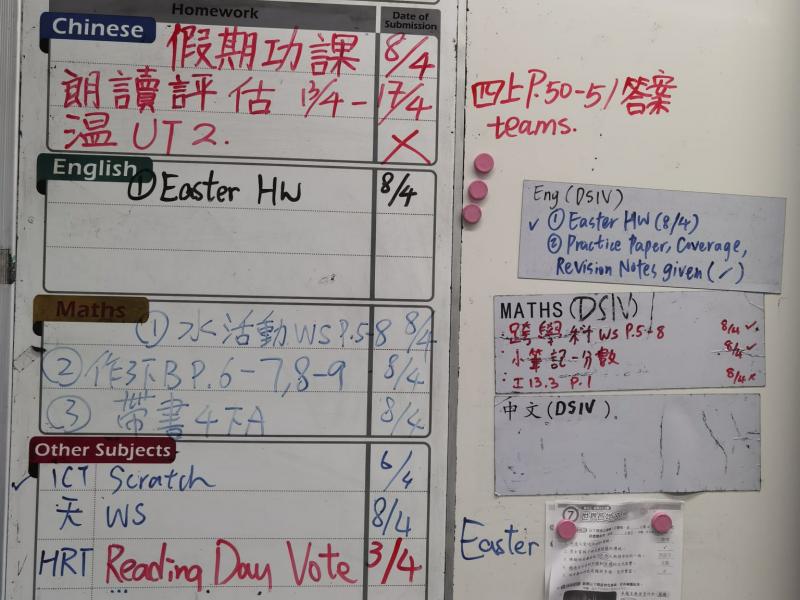 Homework
Date of Submission
Chinese
假期功課 8/4
朗讀評估 13/4-17/4
溫UT2. ×
English
① Easter HW 8/4
Maths
① 水活動WS P.5-8 8/4
② 作3下B P.6-7,8-9 8/4
③ 帶書4下A 8/4
Other Subjects
✓ ICT Scratch 6/4
天 WS 8/4
HRT Reading Day Vote 3/4
四上P.50-51答案
teams.
Eng (DSIV)
✓ ① Easter HW (8/4)
② Practice Paper, Coverage,
Revision Notes given (✓)
MATHS (DSIV)
跨學科WS P.5-8 8/4 ✓
小筆記-分數 8/4 ✓
13.3 P.1 8/4 ×
中文(DSIV)
Easter
7